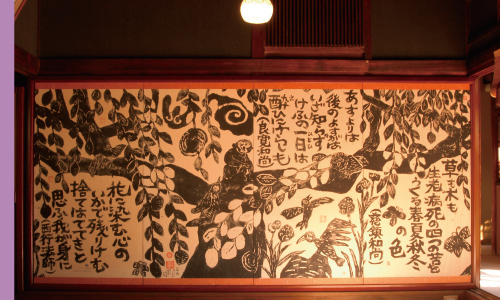 草も木も
生老病死の四つの苦に
うつる春夏秋冬
の色
(慈鎮和尚)
あすよりは
後のよすがは
いざ知らず
けふの一日は
酔ひにけらしも
(良寛和尚)
花に染む心の
いかで残りけむ
捨てはててきと
思ふ我が身に
(西行法師)